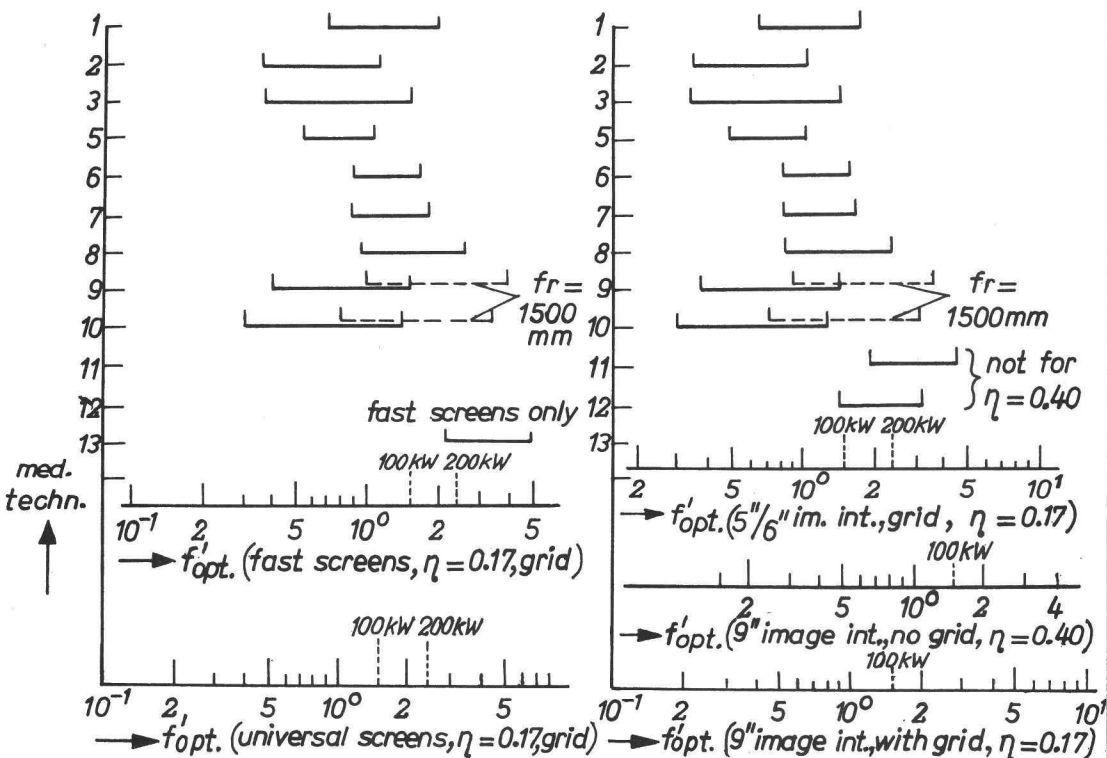 1
2
3
5
6
7
8
9
10
11
12
13
fr =
1500
mm
fast screens only
100kW 200kW
med.
techn.
10⁻¹ 2 5 10⁰ 2 5
f'opt. (fast screens, η = 0.17, grid)
100kW 200kW
10⁻¹ 2 5 10⁰ 2 5
f'opt. (universal screens, η = 0.17, grid)
1
2
3
5
6
7
8
9
10
11
12
13
fr =
1500mm
not for
η = 0.40
100kW 200kW
2 5 10⁰ 2 5 10¹
f'opt. (5"/6" im. int., grid, η = 0.17)
100kW
2 5 10⁰ 2 4
f'opt. (9" image int., no grid, η = 0.40)
100kW
10⁻¹ 2 5 10⁰ 2 5 10¹
f'opt. (9" image int., with grid, η = 0.17)